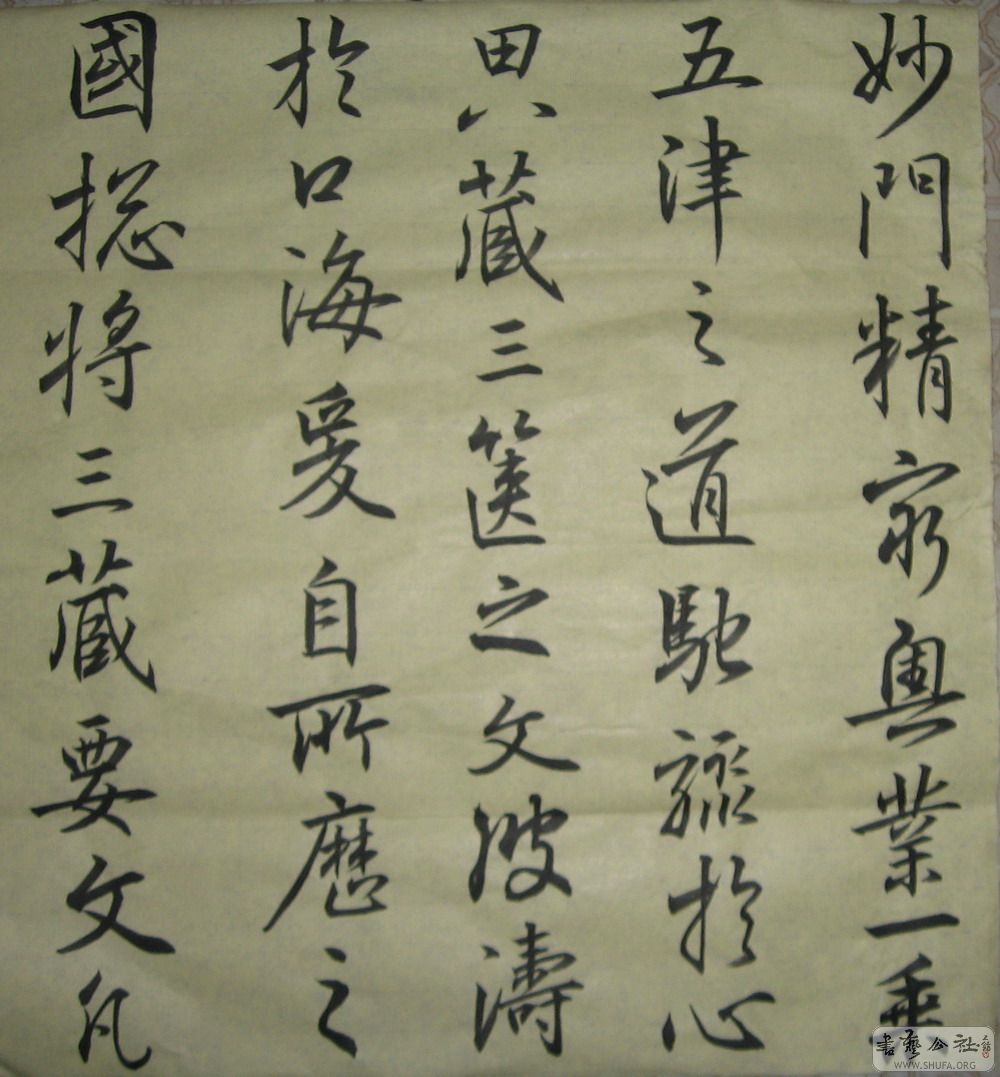 妙門精窮奧業一乘
五律之道馳驟於心
田八藏三篋之文波濤
於口海爰自所歷之
國揔将三藏要文凡
書藝公社
WWW.SHUFA.ORG